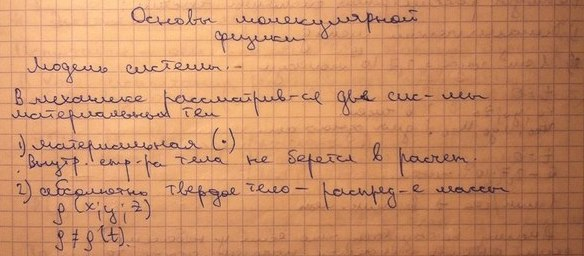 Основы молекулярной
физики
Модель системы.-
В механике рассматрив-ся две сис-мы
материальных тел
1) материальная (•)
Внутр. стр-ра тела не берется в расчет.
2) абсолютно твердое тело - распред-е массы
ρ (x; y; z)
ρ ≠ ρ (t).